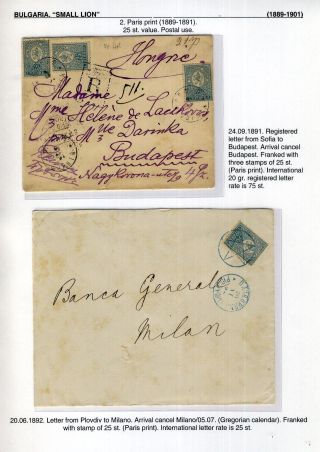 BULGARIA. "SMALL LION" (1889-1901)
2. Paris print (1889-1891).
25 st. value. Postal use.
Hongrie
R
Madame
Mme Hélène de
Mlle Darinka
Budapest
24.09.1891. Registered
letter from Sofia to
Budapest. Arrival cancel
Budapest. Franked with
three stamps of 25 st.
(Paris print). International
20 gr. registered letter
rate is 75 st.
Banca Generale
Milan
20.06.1892. Letter from Plovdiv to Milano. Arrival cancel Milano/05.07. (Gregorian calendar). Franked
with stamp of 25 st. (Paris print). International letter rate is 25 st.